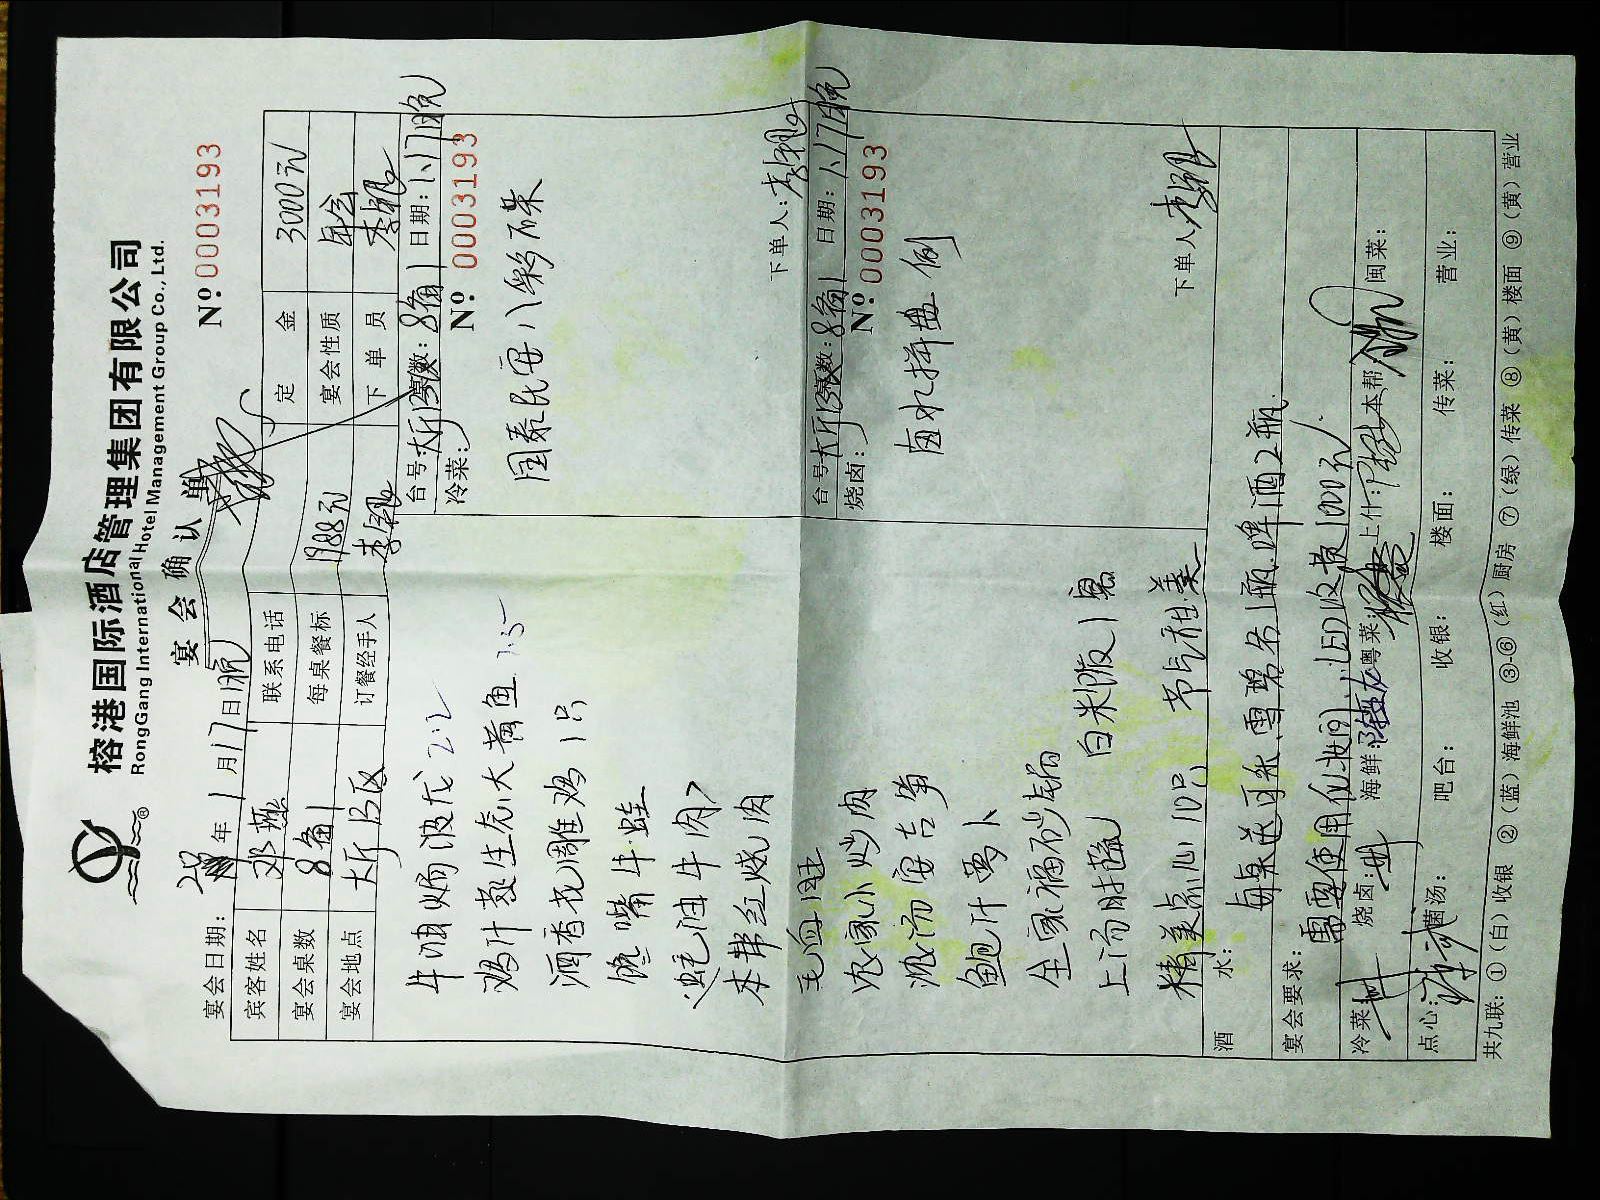 榕港国际酒店管理集团有限公司
RongGang International Hotel Management Group Co., Ltd.
宴会确认单
Nº 0003193
宴会日期: 年 1 月 17 日 晚
宾客姓名 邓燕 联系电话 定金 3000元
宴会桌数 8备1 每桌餐标 1988元 宴会性质 年会
宴会地点 大厅B区 订餐经手人 下单员
台号: 大厅B 桌数: 8备1 日期: 1.17日晚
冷菜: Nº 0003193
国泰民安八彩碟
下单人:
台号: 大厅B 桌数: 8备1 日期: 1.17日晚
烧卤: Nº 0003193
卤水拼盘 例
下单人:
牛油焗波龙 2.2
鸡汁蒸生态大黄鱼 1.5
酒香花雕鸡 1只
馋嘴牛蛙
蚝油牛肉
本帮红烧肉
毛血旺
农家小炒肉
浓汤安吉笋
鲍汁萝卜
全家福砂锅
上汤时蔬 白米饭1窝
精美点心 10只 节气桂羹
酒水: 每桌送可乐、雪碧各1瓶.啤酒2瓶.
宴会要求: 需要使用化妆间.LED收费1000元.
冷菜: 烧卤: 海鲜: 粤菜: 上什: 本帮: 闽菜:
点心: 菌汤: 吧台: 收银: 楼面: 传菜: 营业:
共九联: ①(白)收银 ②(蓝)海鲜池 ③-⑥(红)厨房 ⑦(绿)传菜 ⑧(黄)楼面 ⑨(黄)营业